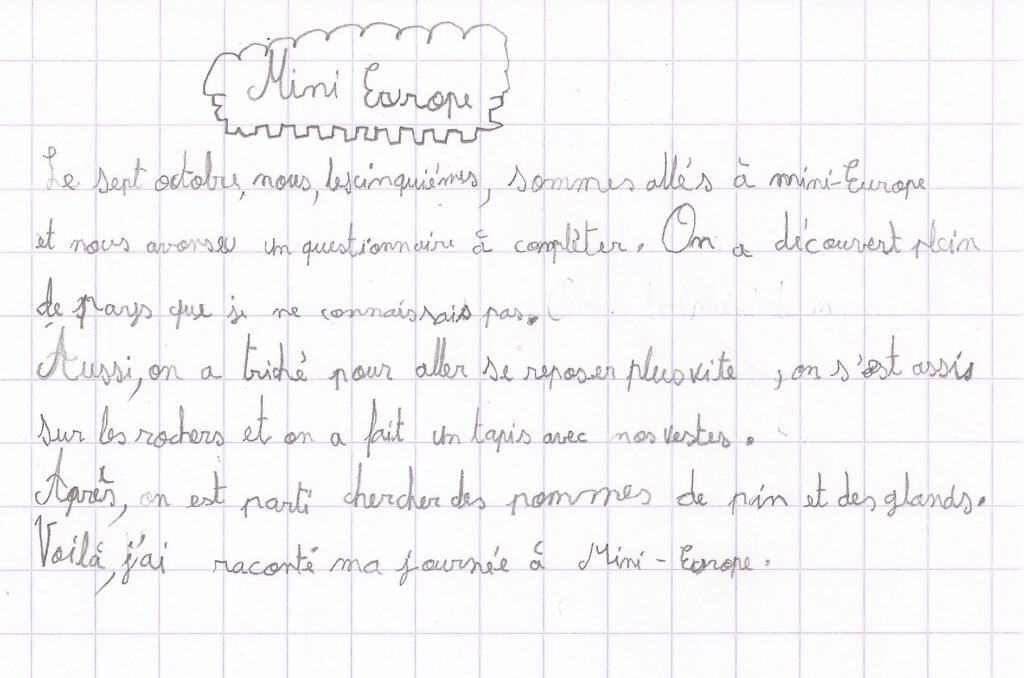 Mini Europe
Le sept octobre, nous, les cinquièmes, sommes allés à mini-Europe
et nous avons eu un questionnaire à complèter. On a découvert plein
de pays que je ne connaissais pas.
Aussi, on a triché pour aller se reposer plus vite, on s'est assis
sur les rochers et on a fait un tapis avec nos vestes.
Après, on est parti chercher des pommes de pin et des glands.
Voilà, j'ai raconté ma journée à Mini-Europe.